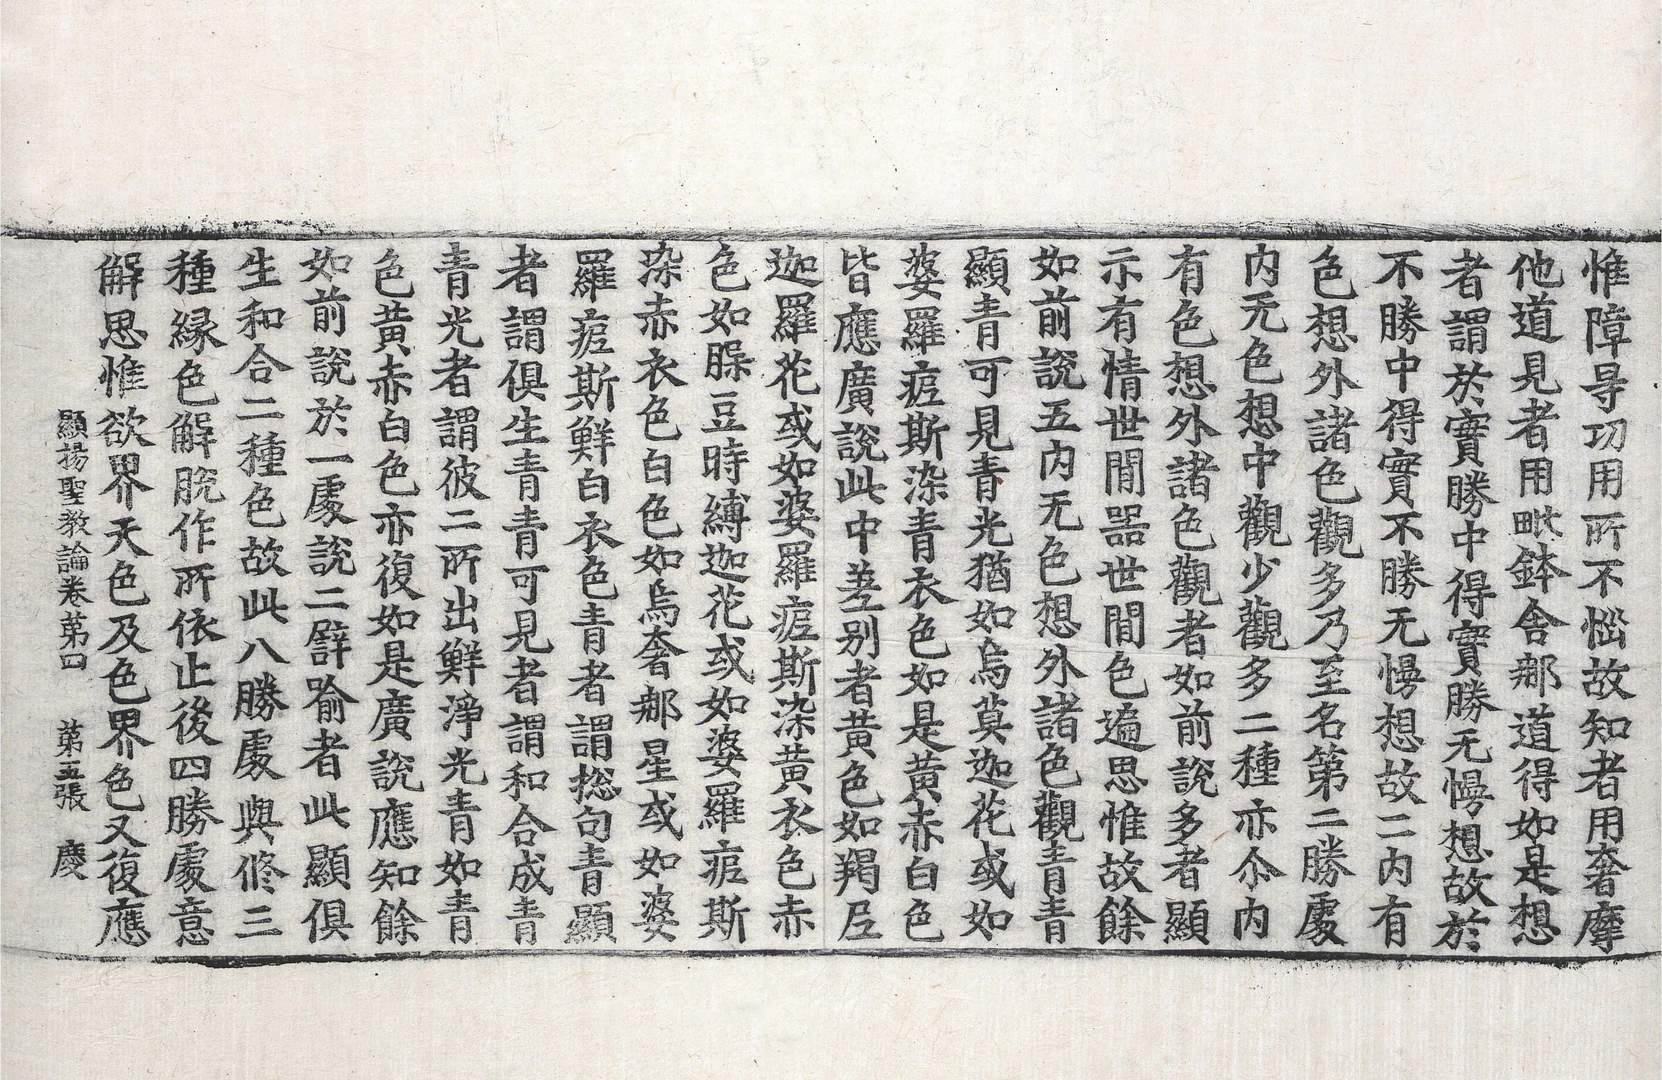 惟障㝵功用所不惱故知者用奢摩
他道見者用毗鉢舍那道得如是想
者謂於實勝中得實勝无慢想故於
不勝中得實不勝无慢想故二内有
色想外諸色觀多乃至名第二勝處
内无色想中觀少觀多二種亦尒内
有色想外諸色觀者如前說多者顯
示有情世間器世間色遍思惟故餘
如前說五内无色想外諸色觀青青
顯青可見青光猶如烏莫迦花或如
婆羅痆斯染青衣色如是黃赤白色
皆應廣說此中差別者黃色如羯尼
迦羅花或如婆羅痆斯染黃衣色赤
色如脲豆時縛迦花或如婆羅痆斯
染赤衣色白色如烏奢那星或如婆
羅痆斯鮮白衣色青者謂揔句青顯
者謂俱生青青可見者謂和合成青
青光者謂彼二所出鮮淨光青如青
色黃赤白色亦復如是廣說應知餘
如前說於一處說二譬喻者此顯俱
生和合二種色故此八勝處與修三
種緣色解脫作所依止後四勝處意
解思惟欲界天色及色界色又復應
顯揚聖教論卷第四　第五張　慶